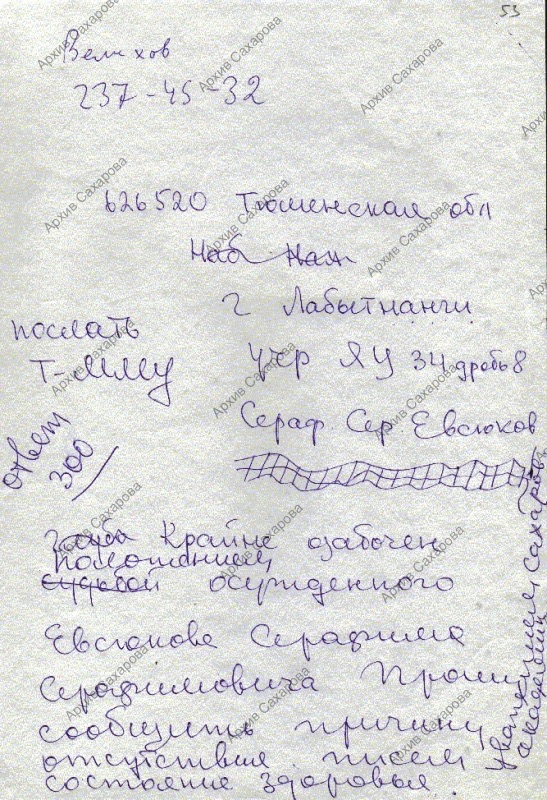 53
Велихов
237-45-32
626520 Тюменская обл
Наб Нах
г Лабытнанги
послать
Т-мму
учр ЯЦ 34 дробь 8
Сераф Сер Евсюков
ответ
300
Крайне озабочен
положением
судьбой осужденного
Евсюкова Серафима
Серафимовича Прошу
сообщить причину
отсутствия писем
состояние здоровья.
уважением Сахаров
академик
Архив Сахарова